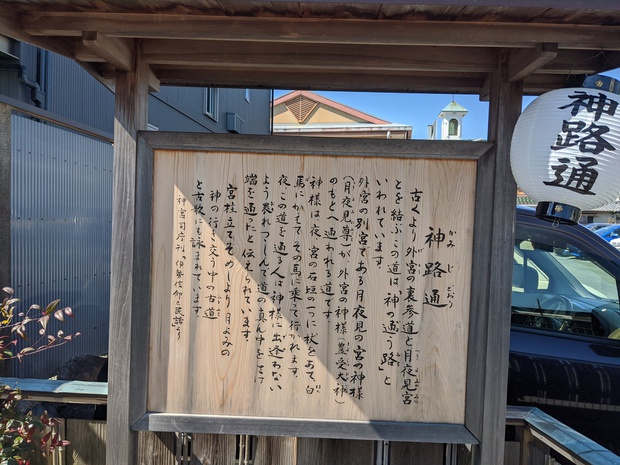 神路通
かみじどおり
古くより外宮の裏参道と月夜見宮
とを結ぶこの道は、神の通う路と
いわれています。
外宮の別宮である月夜見の宮の神様
(月夜見尊)が外宮の神様(豊受大神)
のもとへ通われる道です
神様は夜、宮の石垣の一つに杖をあて、白
馬にかえて その馬に乗って行かれます。
夜、この道を通る人は、神様に出逢わない
よう畏れつつしんで道の真ん中をさけ
端を通ったと伝えられています
宮柱立てそめしより月よみの
神の行き交う中の古道
と古歌にも詠まれています。
神宮司庁刊「伊勢信仰と民話」より
神路通